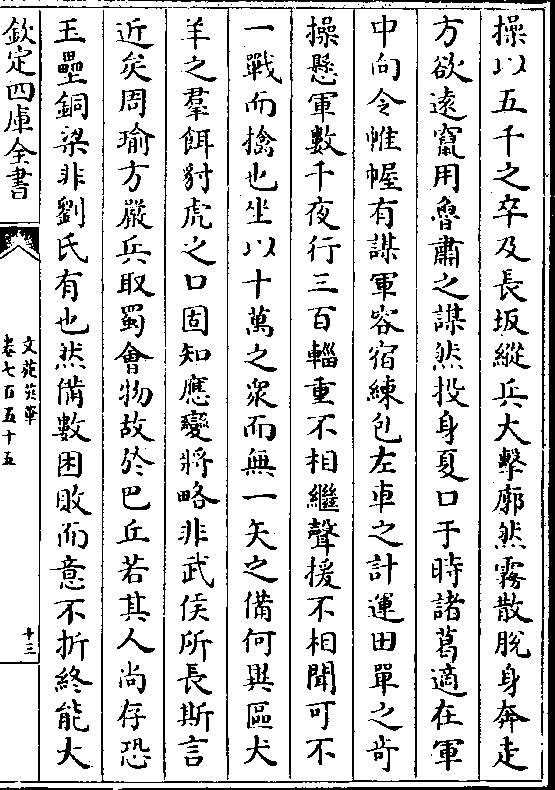 操以五千之卒及長坂縱兵大擊廓然霧散脫身奔走
方欲遠竄用魯肅之謀然投身夏口于時諸葛適在軍
中向令帷幄有謀軍容宿練包左車之計運田單之奇
操懸軍數千夜行三百輜重不相繼聲援不相聞可不
一戰而擒也坐以十萬之衆而無一矢之備何異區犬
羊之羣餌豺虎之口固知應變將略非武侯所長斯言
近矣周瑜方嚴兵取蜀會物故於巴丘若其人尚存恐
玉壘銅梁非劉氏有也然備數困敗而意不折終能大
欽定四庫全書
文苑英華
卷七百五十五
十三